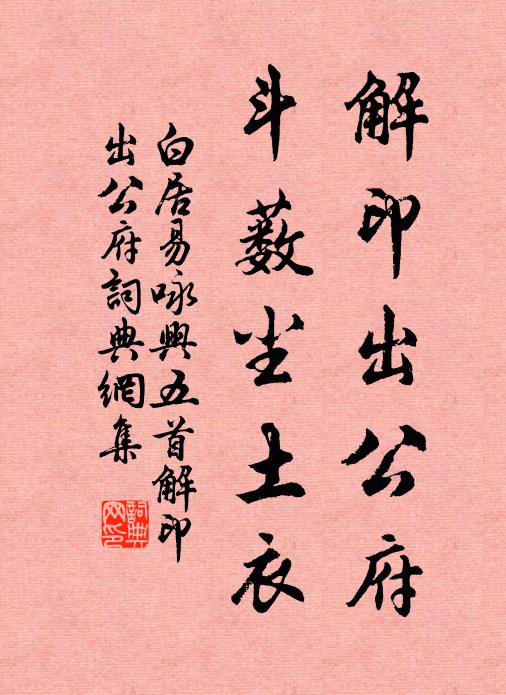 解印出公府
斗藪尘土衣
白居易咏興五首解印
出公府詞典網集
詞典网印